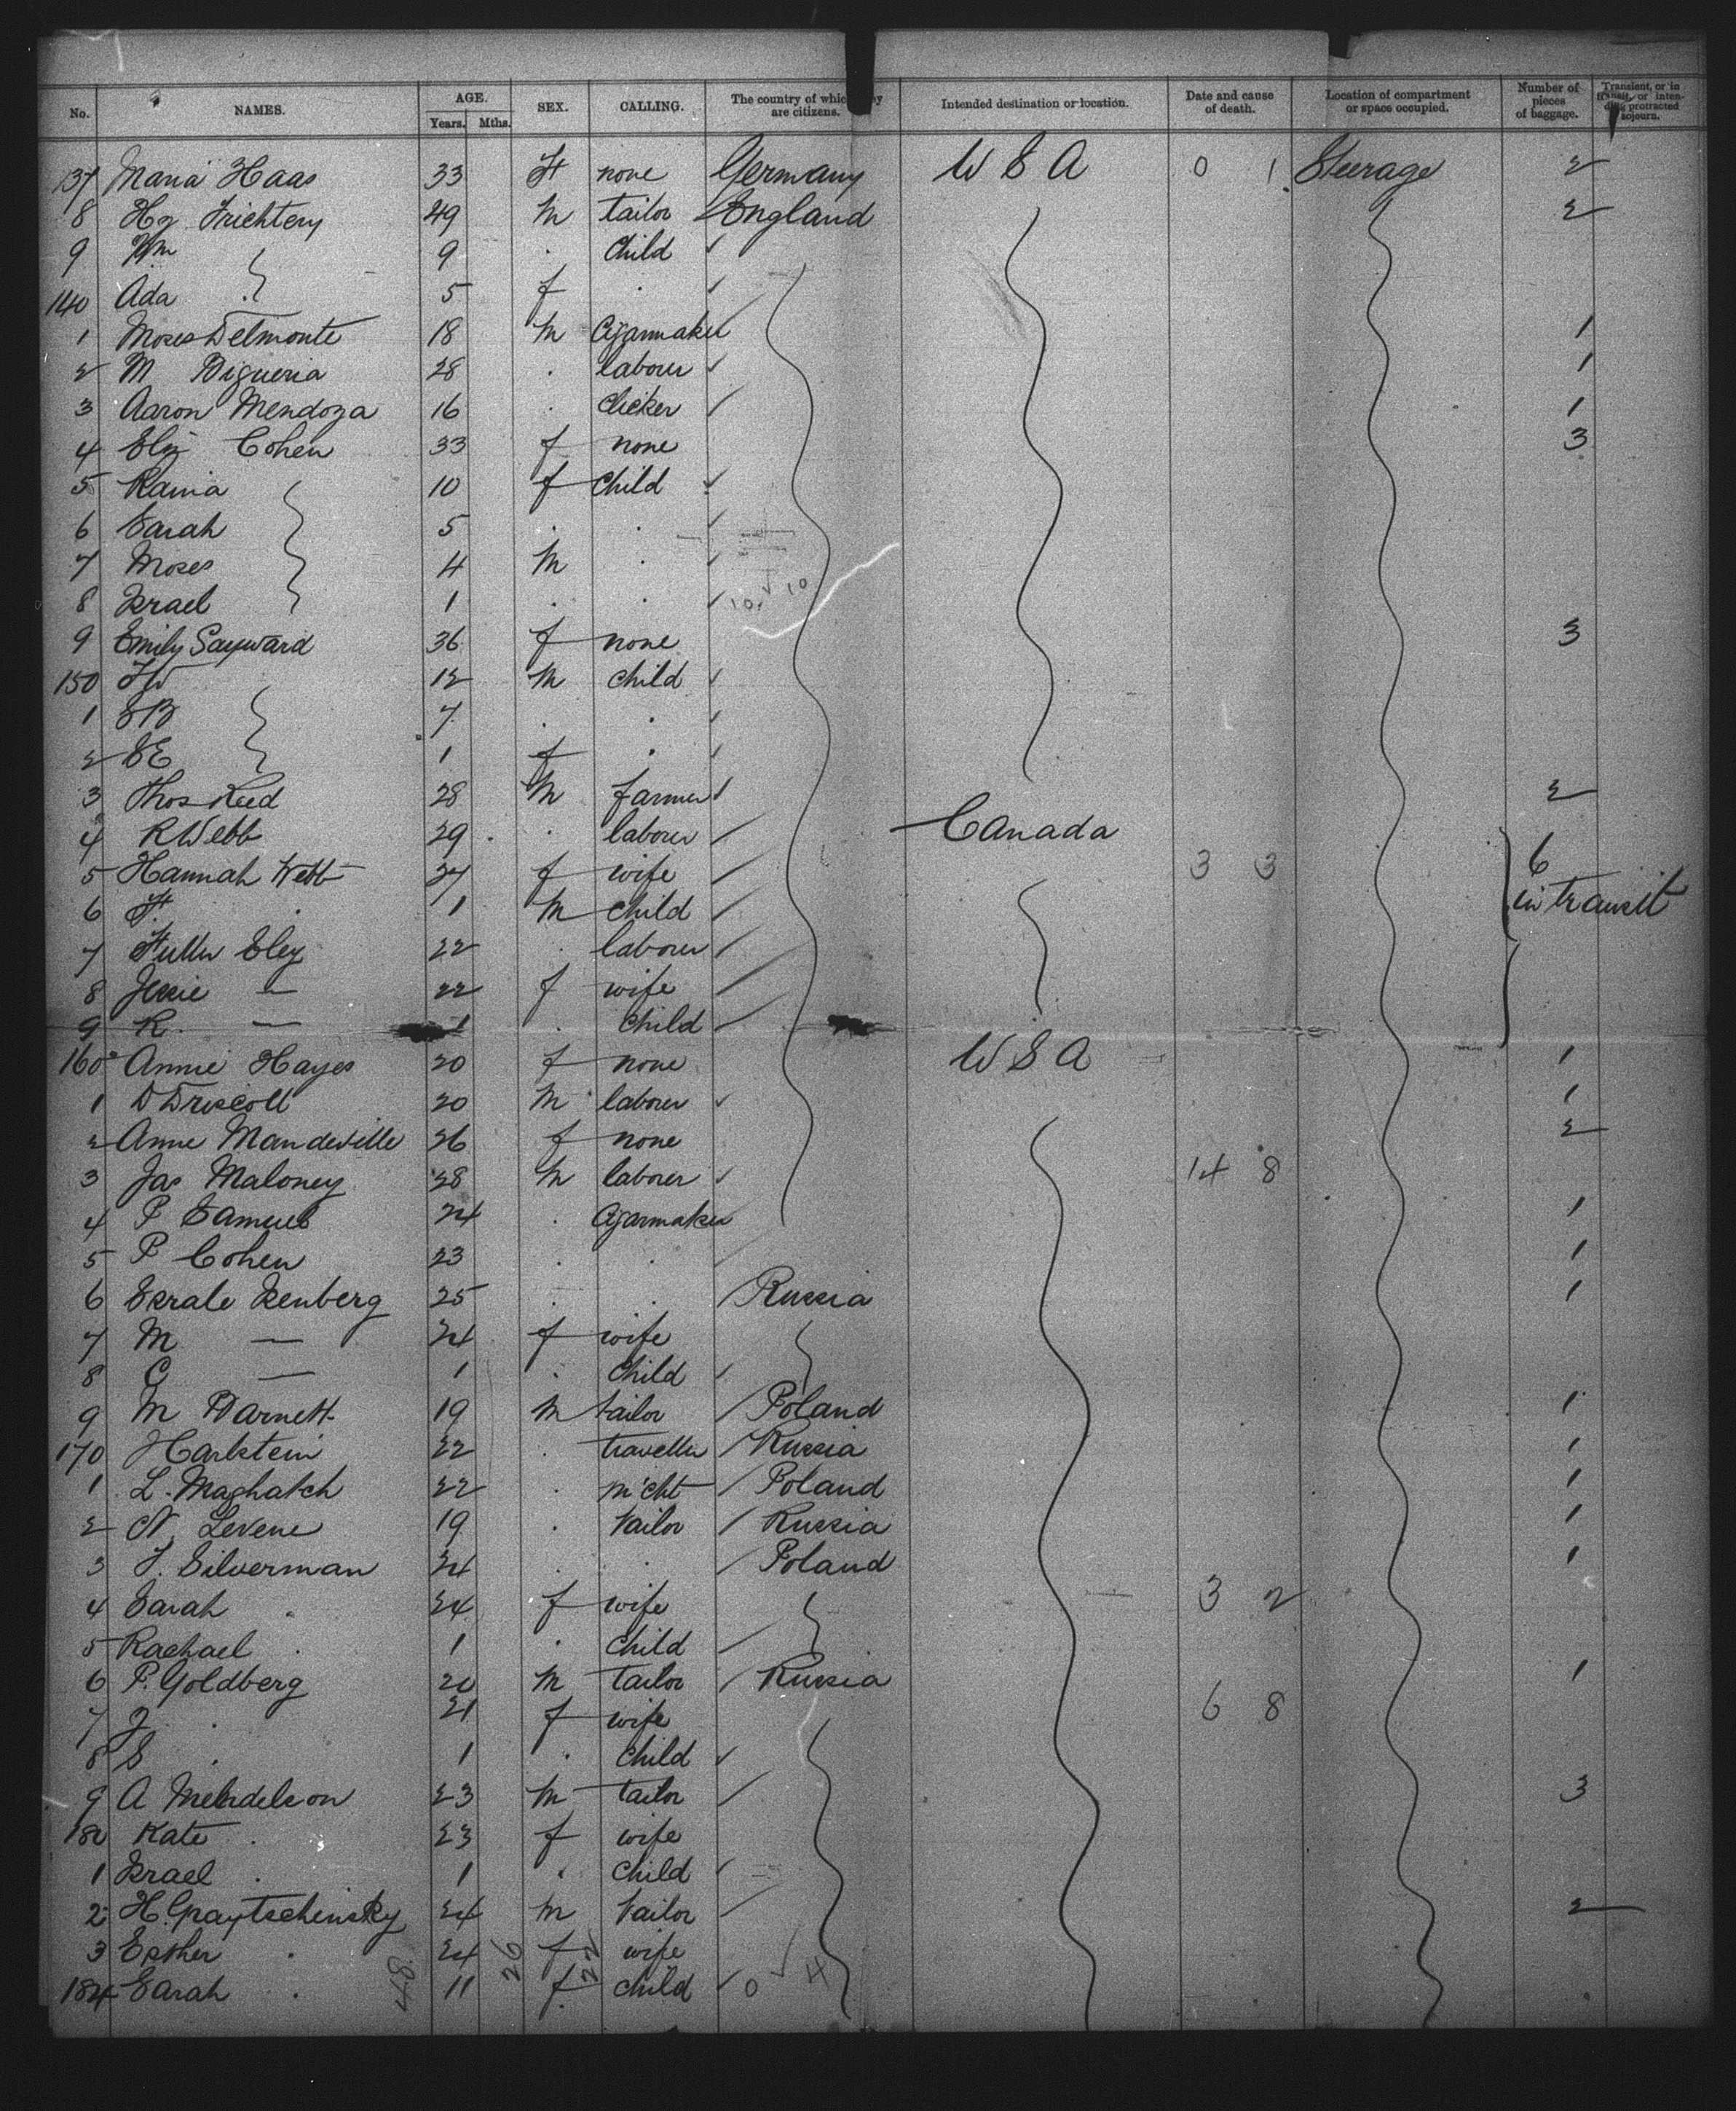 No. NAMES. AGE. Years. Mths. SEX. CALLING. The country of which they are citizens. Intended destination or location. Date and cause of death. Location of compartment or space occupied. Number of pieces of baggage. Transient, or in transit, or intending protracted sojourn.
137 Maria Haas 33 F none Germany U S A 0 1 Steerage 2
8 Hy 49 M tailor England 2
9 Wm 9 . Child
140 Ada 5 f .
1 Moses Delmonte 18 M Cigarmaker 1
2 M 28 . laborer 1
3 Aaron Mendoza 16 . Clicker 1
4 Eliz Cohen 33 f none 3
5 Raina 10 f Child
6 Sarah 5 . .
7 Moses 4 M .
8 Israel 1 . . 10 10
9 Emily Sayward 36 f none 3
150 12 M child
1 SB 7 . .
2 SE 1 f .
3 Thos Reed 28 M farmer 2
4 R Webb 29 . laborer Canada 6
5 Hannah Webb 27 f wife 3 3
6 F. 1 M child in transit
7 Eley 22 . laborer
8 Jessie — 22 f wife
9 R. — 1 . child
160 Annie Hayes 20 f none U S A 1
1 D Driscoll 20 M laborer 1
2 Anne Mandeville 26 f none 2
3 Jas Maloney 28 M laborer 14 8
4 P Samuel 24 . Cigarmaker 1
5 P Cohen 23 . . 1
6 Israle Isenberg 25 . . Russia 1
7 M — 24 f wife
8 C — 1 . child
9 M Barnett 19 M tailor Poland 1
170 Harkstein 22 . traveller Russia 1
1 L. Maghatch 22 . m'cht Poland 1
2 N. Levene 19 . tailor Russia 1
3 J. Silverman 24 . . Poland 1
4 Sarah . 24 f wife 3 2
5 Rachael . 1 . child
6 P. Goldberg 20 M tailor Russia 1
7 J . 21 f wife 6 8
8 S . 1 . child
9 A Mendelson 23 M tailor 3
180 Kate . 23 f wife
1 Israel . 1 . child
2 24 M tailor 2
3 Esther . 24 f wife
184 Sarah . 11 f child 0 4
48. 26 22